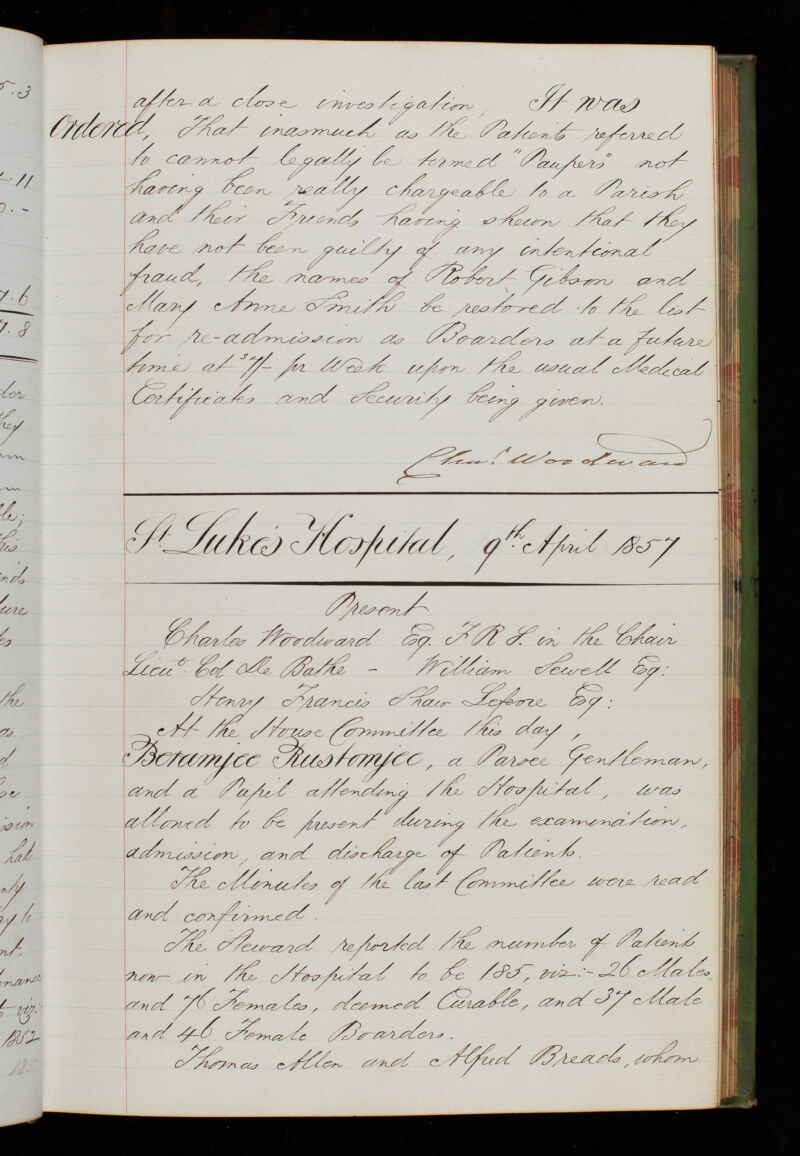 5.3
after a close investigation, It was
Ordered, That inasmuch as the Patients referred
to cannot legally be termed "Paupers" not
.11
having been really chargeable to a Parish
0.-
and their Friends having shewn that they
have not been guilty of any intentional
fraud, the names of Robert Gibson and
7.6
Mary Anne Smith be restored to the list
7.8
for re-admission as Boarders at a future
time at 7/- pr Week upon the usual Medical
Certificates and Security being given.
Chas. Woodward
St. Luke's Hospital, 9th. April 1857
Present
Charles Woodward Esq. F.R.S. in the Chair
Lieut. Col De Bathe - William Sewell Esq:
Henry Francis Shaw Lefevre Esq:
At the House Committee this day,
Beramjee Rustomjee, a Parsee Gentleman,
and a Pupil attending the Hospital, was
allowed to be present during the examination,
admission, and discharge of Patients.
The Minutes of the last Committee were read
and confirmed.
The Steward reported the number of Patients
now in the Hospital to be 185, viz:- 26 Males,
and 76 Females, deemed Curable, and 37 Male
and 46 Female Boarders.
1852
Thomas Allen and Alfred Breads, whom